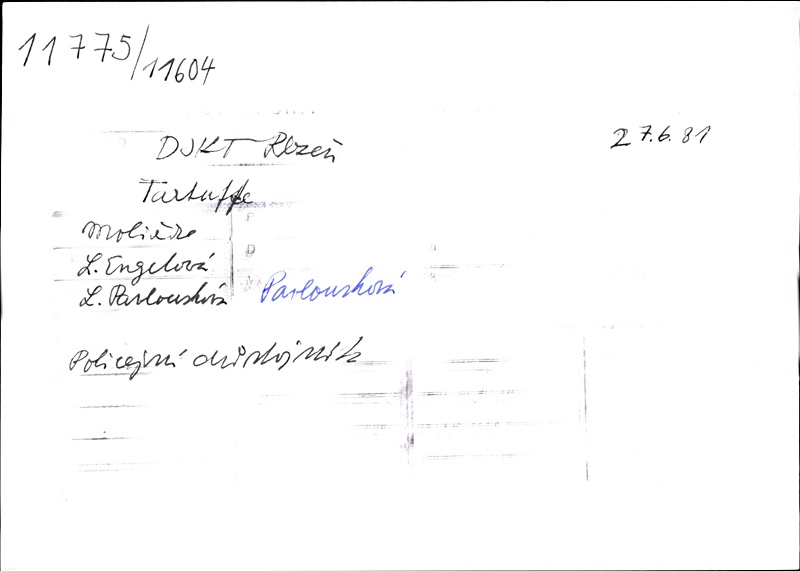 11775/11604
DJKT Plzeň
27.6.81
Tartuffe
Molière
L. Engelová
L. Pavlousková Pavlousková
Policejní důstojník